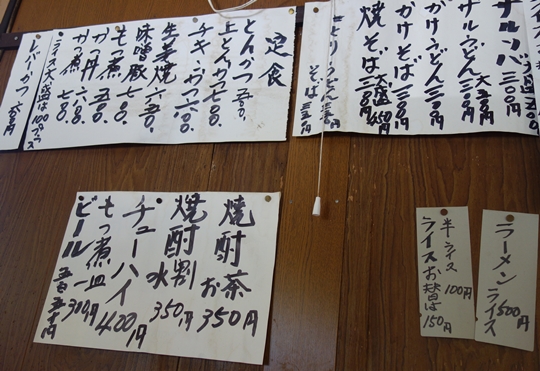 定食
とんかつ 五五〇.
上とんかつ 七〇〇.
チキンかつ 六〇〇.
生姜焼 六五〇.
味噌豚 七〇〇.
もつ煮 五〇〇.
かつ丼 六八〇.
かつ煮 七〇〇.
ライス大盛は100プラス
レバーかつ 六五〇円
サルソバ 三〇〇円
サルうどん 三〇〇円
かけうどん 三〇〇円
かけそば 三〇〇円
焼そば 三〇〇円
大盛 450円
そば 三五〇円
焼酎お茶 350円
焼酎水割 350円
チューハイ 400円
もつ煮一皿 300円
ビール 五百五十円
半ライス 100円
ライスお替は 150円
ラーメンライス 500円